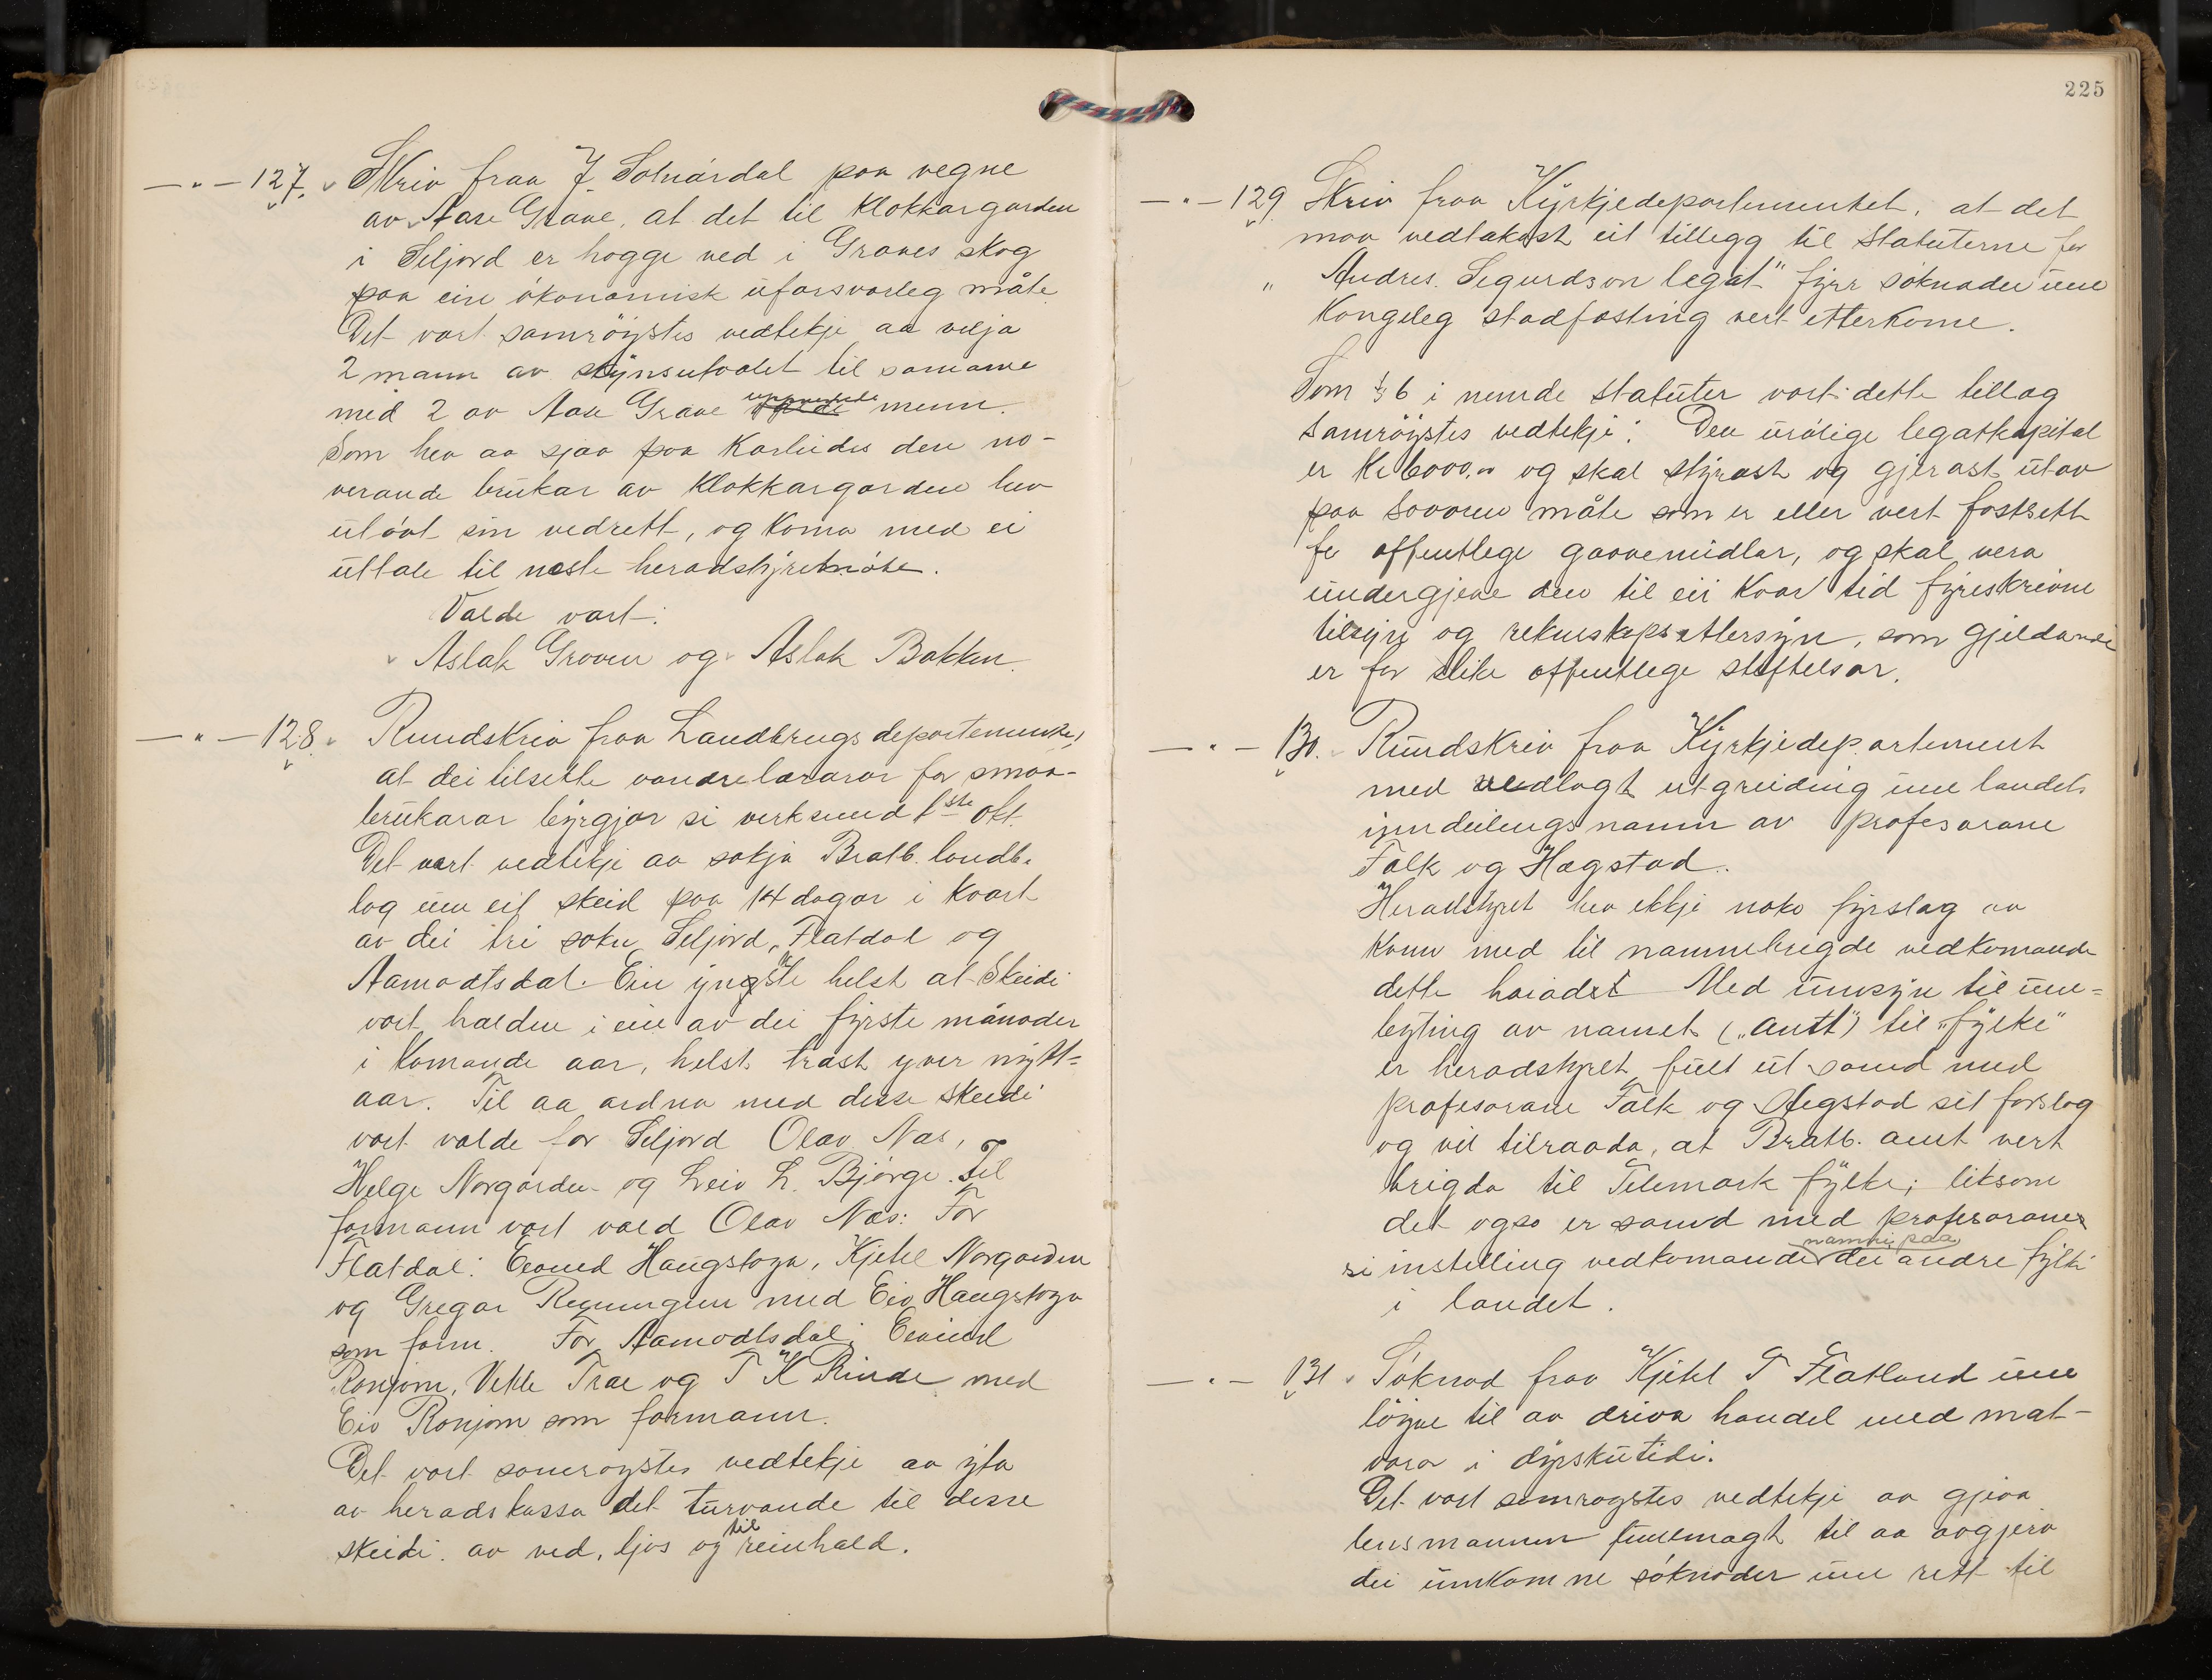 — " — 127. Skriv fraa J. Solnårdal paa vegne
av Aase Grave, at det til Klokkargarden
i Seljord er hogge ved i Graves skog
paa ein økonomisk uforsvarleg måte.
Det vart samrøystes vedtekje aa velja
2 mann av skynsutvalet til samame
med 2 av Aase Grave uppnemde menn.
Som hev aa sjaa paa Korleides den no-
verande brukar av Klokkargarden hev
utøvt sin vedrett, og koma med ei
uttale til neste heradstyremøte.
Valde vart:
Aslak Groven og Aslak Bakken.
— " — 128. Rundskriv fraa Landbrugsdepartementet,
at dei tilsette vandrelærarar for smaa-
brukarar byrgjar si verksemd 1ste okt.
Det vart vedtekje aa søkja Bratb. landb.
lag um eit skeid paa 14 dagar i kvart
av dei tri sokn Seljord, Flatdal og
Aamodtsdal. Ein ynskte helst at Skeidi
vart halden i ein av dei fyrste månader
i Komande aar, helst trast yver nytt-
aar. Til aa ordna med desse skeidi
vart valde for Seljord Olav Næs,
Helge Norgarden og Leiv L. Bjørge. Til
formann vart vald Olav Næs: For
Flatdal: Eivind Haugstoga, Kjetil Norgarden
og Gregar Rynningen med Eiv. Haugstoga
som form. For Aamodtsdal: Eivind
Ronjom, Vetle Trae og T K Rinde med
Eiv Ronjom som formann.
Det vart samrøystes vedtekje aa yta
av heradskassa det turvande til desse
skeidi av ved, ljos og til reinhald.
225
— " — 129 Skriv fraa Kyrkjedepartementet, at det
maa vedtakast eit tillegg til Statuterne for
" Andres Segurdson legat" fyrr søknaden um
Kongeleg stadfasting vert etterkome.
Som § 6 i nemde statuter vart dette tillag
samrøystes vedtekje: Den urølige legatkapital
er Kr 6000.00 og skal styrast og gjerast utav
paa soovoren måte som er eller vert fastsett
for offentlege gaavemidlar, og skal vera
undergjeve den til ei kvar tid fyreskrivne
tilsyn og rekneskapsettersyn, som gjeldande
er for slike offentlege stiftelsar.
— " — 130. Rundskriv fraa Kyrkjedepartement
med vedlagt utgreiding um landets
inndeilingsnamn av profesorane
Falk og Hægstad.
Heradstyret hev ekkje noko fyrslag aa
koma med til namnebrigde vedkomande
dette heradet Med umsyn til um-
byting av namet ("amt") til "fylke"
er heradstyret fullt ut samd med
profesorane Falk og Hegstad sit forslag
og vil tilraada, at Bratb. amt vert
brigda til Telemark fylke; liksom
det ogso er samd med profesoranes
si instelling vedkomande namni paa dei andre fylki
i landet.
— " — 131. Søknad fraa Kjetil T Flatland um
løyve til aa driva handel med mat-
varor i dyrskutidi.
Det vart samrøystes vedtekje aa gjeva
lensmannen fullmagt til aa avgjera
dei innkomne søknader um rett til